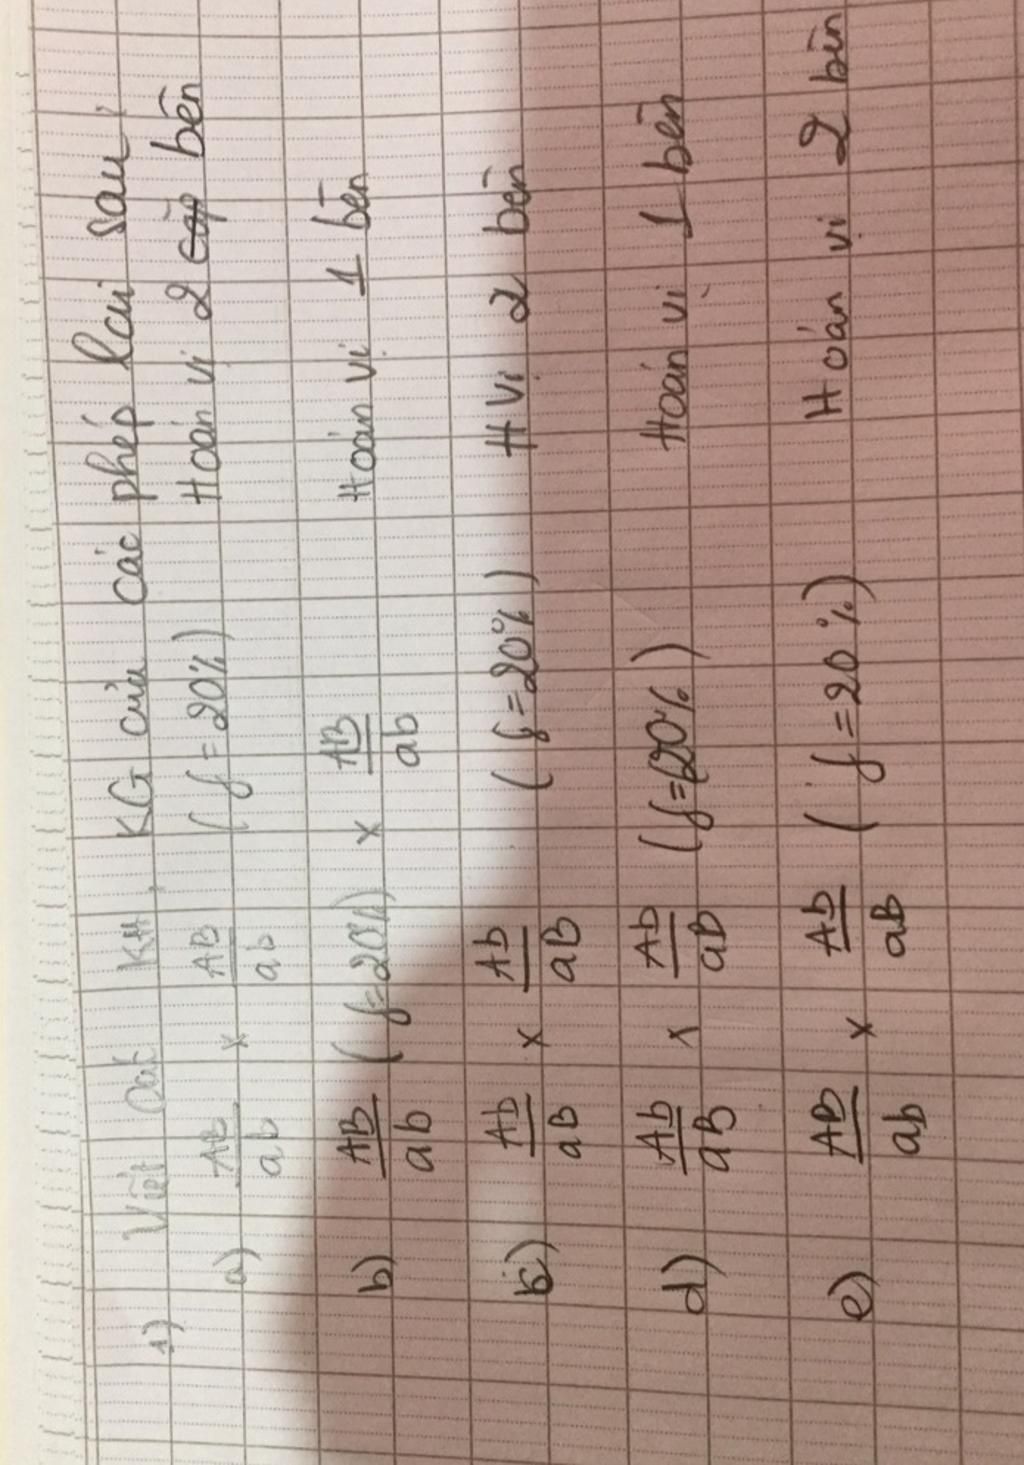 1) Viết oat KH, KG của các phép lai sau:
a) AB/ab x AB/ab (f=20%) Hoán vị 2 bên
b) AB/ab (f=20%) x AB/ab Hoán vị 1 bên
c) Ab/aB x Ab/aB (f=20%) H vị 2 bên
d) Ab/aB x Ab/aB (f=20%) Hoán vị 1 bên
e) AB/ab x Ab/aB (f=20%) Hoán vị 2 bên